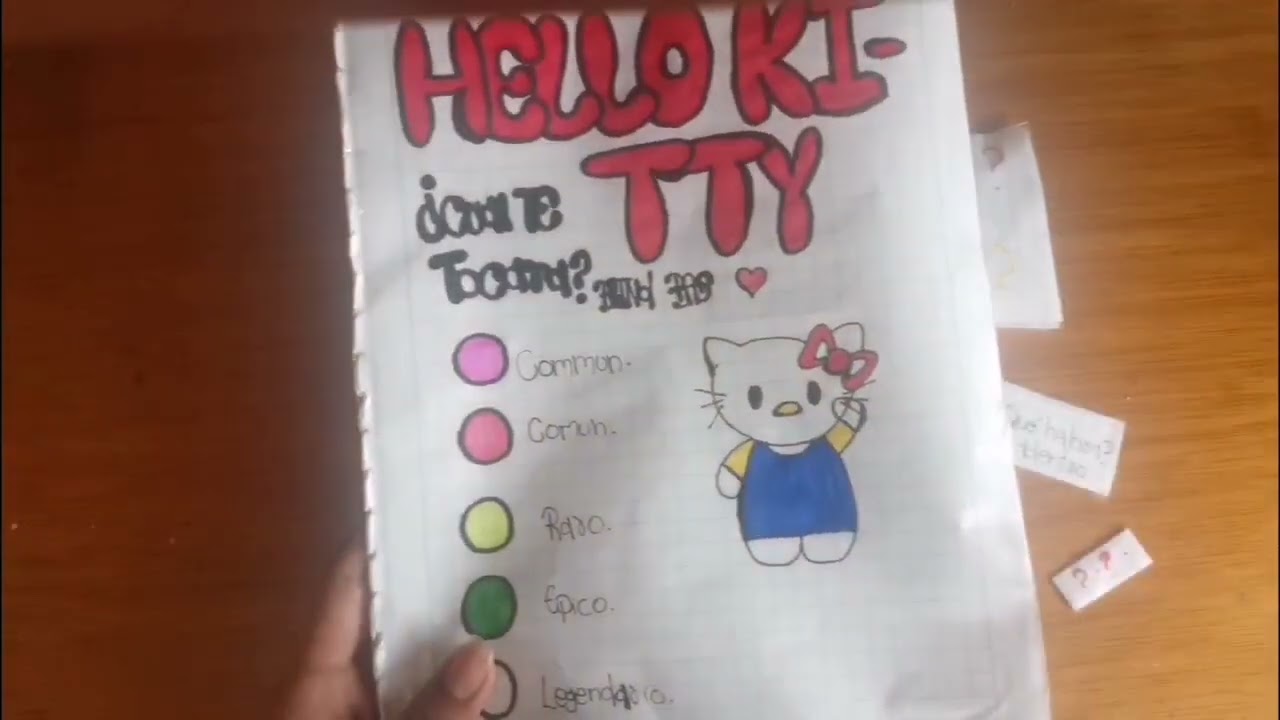 HELLO KI-
TTY
¿Cual TE
Tocara?
Common.
Comun.
Raro.
Epico.
Legendario.
? ?.